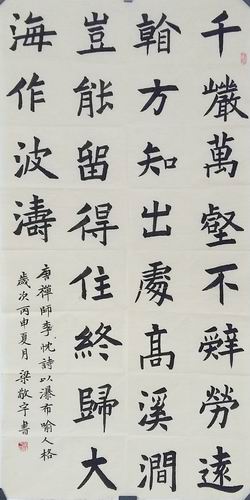 千巖萬壑不辭勞遠
看方知出處高溪澗
豈能留得住終歸大
海作波濤
唐禪師李忱詩以瀑布喻人格
歲次丙申夏月 梁敬宇書